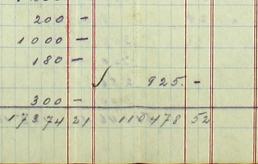 200 -
1000 -
180 -
925. -
300 -
17374 21 110478 52